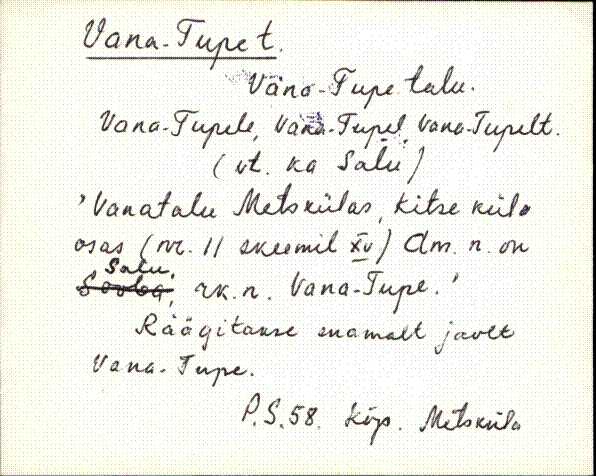 Vana-Tupe t.
Vana-Tupe talu.
Vana-Tupele, Vana-Tupel, Vana-Tupelt.
(vt. ka Salu)
'Vanatalu Metskülas, Kitse küla
osas (nr. 11 skeemil XV) Am. n. on
Salu,
Sooba, rk. n. Vana-Tupe.'
Räägitakse enamalt javlt
Vana-Tupe.
P.S.58. Kõp. Metsküla